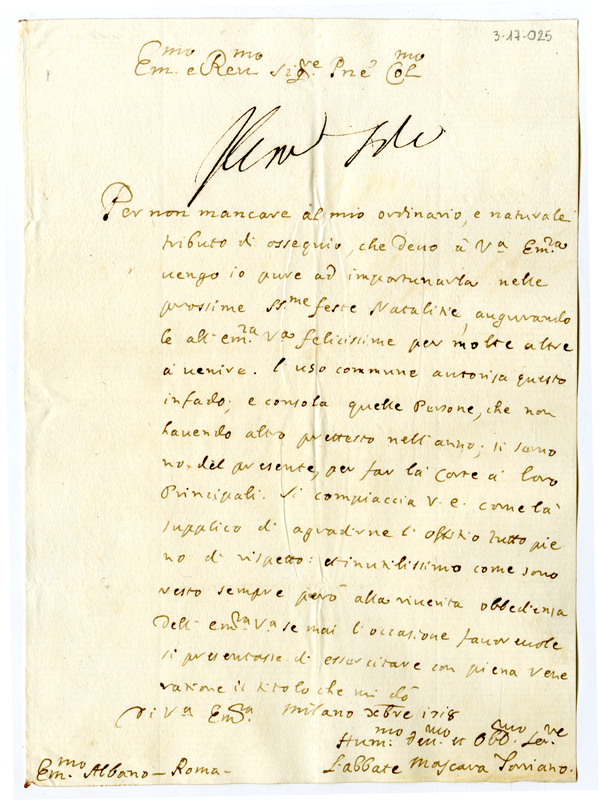 3-17-025
Em.mo e Rev.mo Sig.re P.ne Col.mo
Per non mancare al mio ordinario, e naturale
tributo di ossequio, che devo à V.a Em.za
vengo io pure ad importunarla nelle
prossime SS.me feste Natalitie, augurando
le all'em.za V.a felicissime per molte altre
à venire. l'uso commune autorisa questo
infado; e consola quelle Persone, che non
havendo altro prettesto nell'anno; si servo
no del presente, per far la Corte à loro
Principali. Si compiaccia V. E. come la
supplico di agradirne l'offitio tutto pie
no di rispetto: et inutilissimo come sono
resto sempre però alla riverita obbedienza
Dell'em.za V.a se mai l'occasione favorevole
si presentasse di essercitare con piena vene
razione il titolo che mi dò
di V.a Em.za Milano Xbre 1718
Hum.mo Dev.mo et Obb.mo Ser.re
L'abbate Moscava Torriano.
Em.mo Albano - Roma -